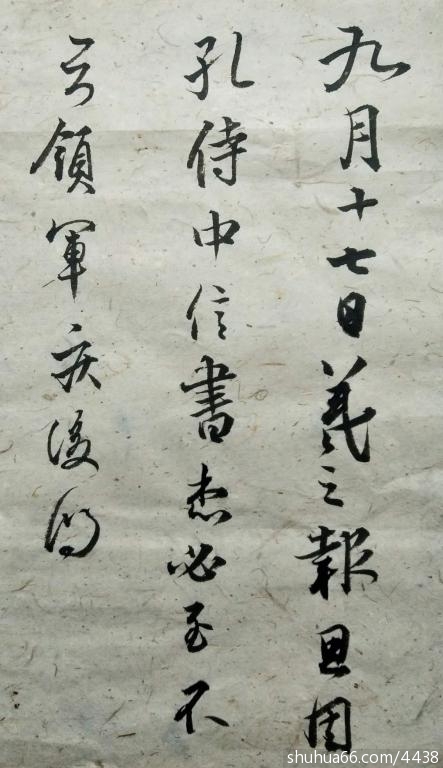 九月十七日羲之報且因
孔侍中信書想必至不
知領軍疾後問
shuhua66.com/4438